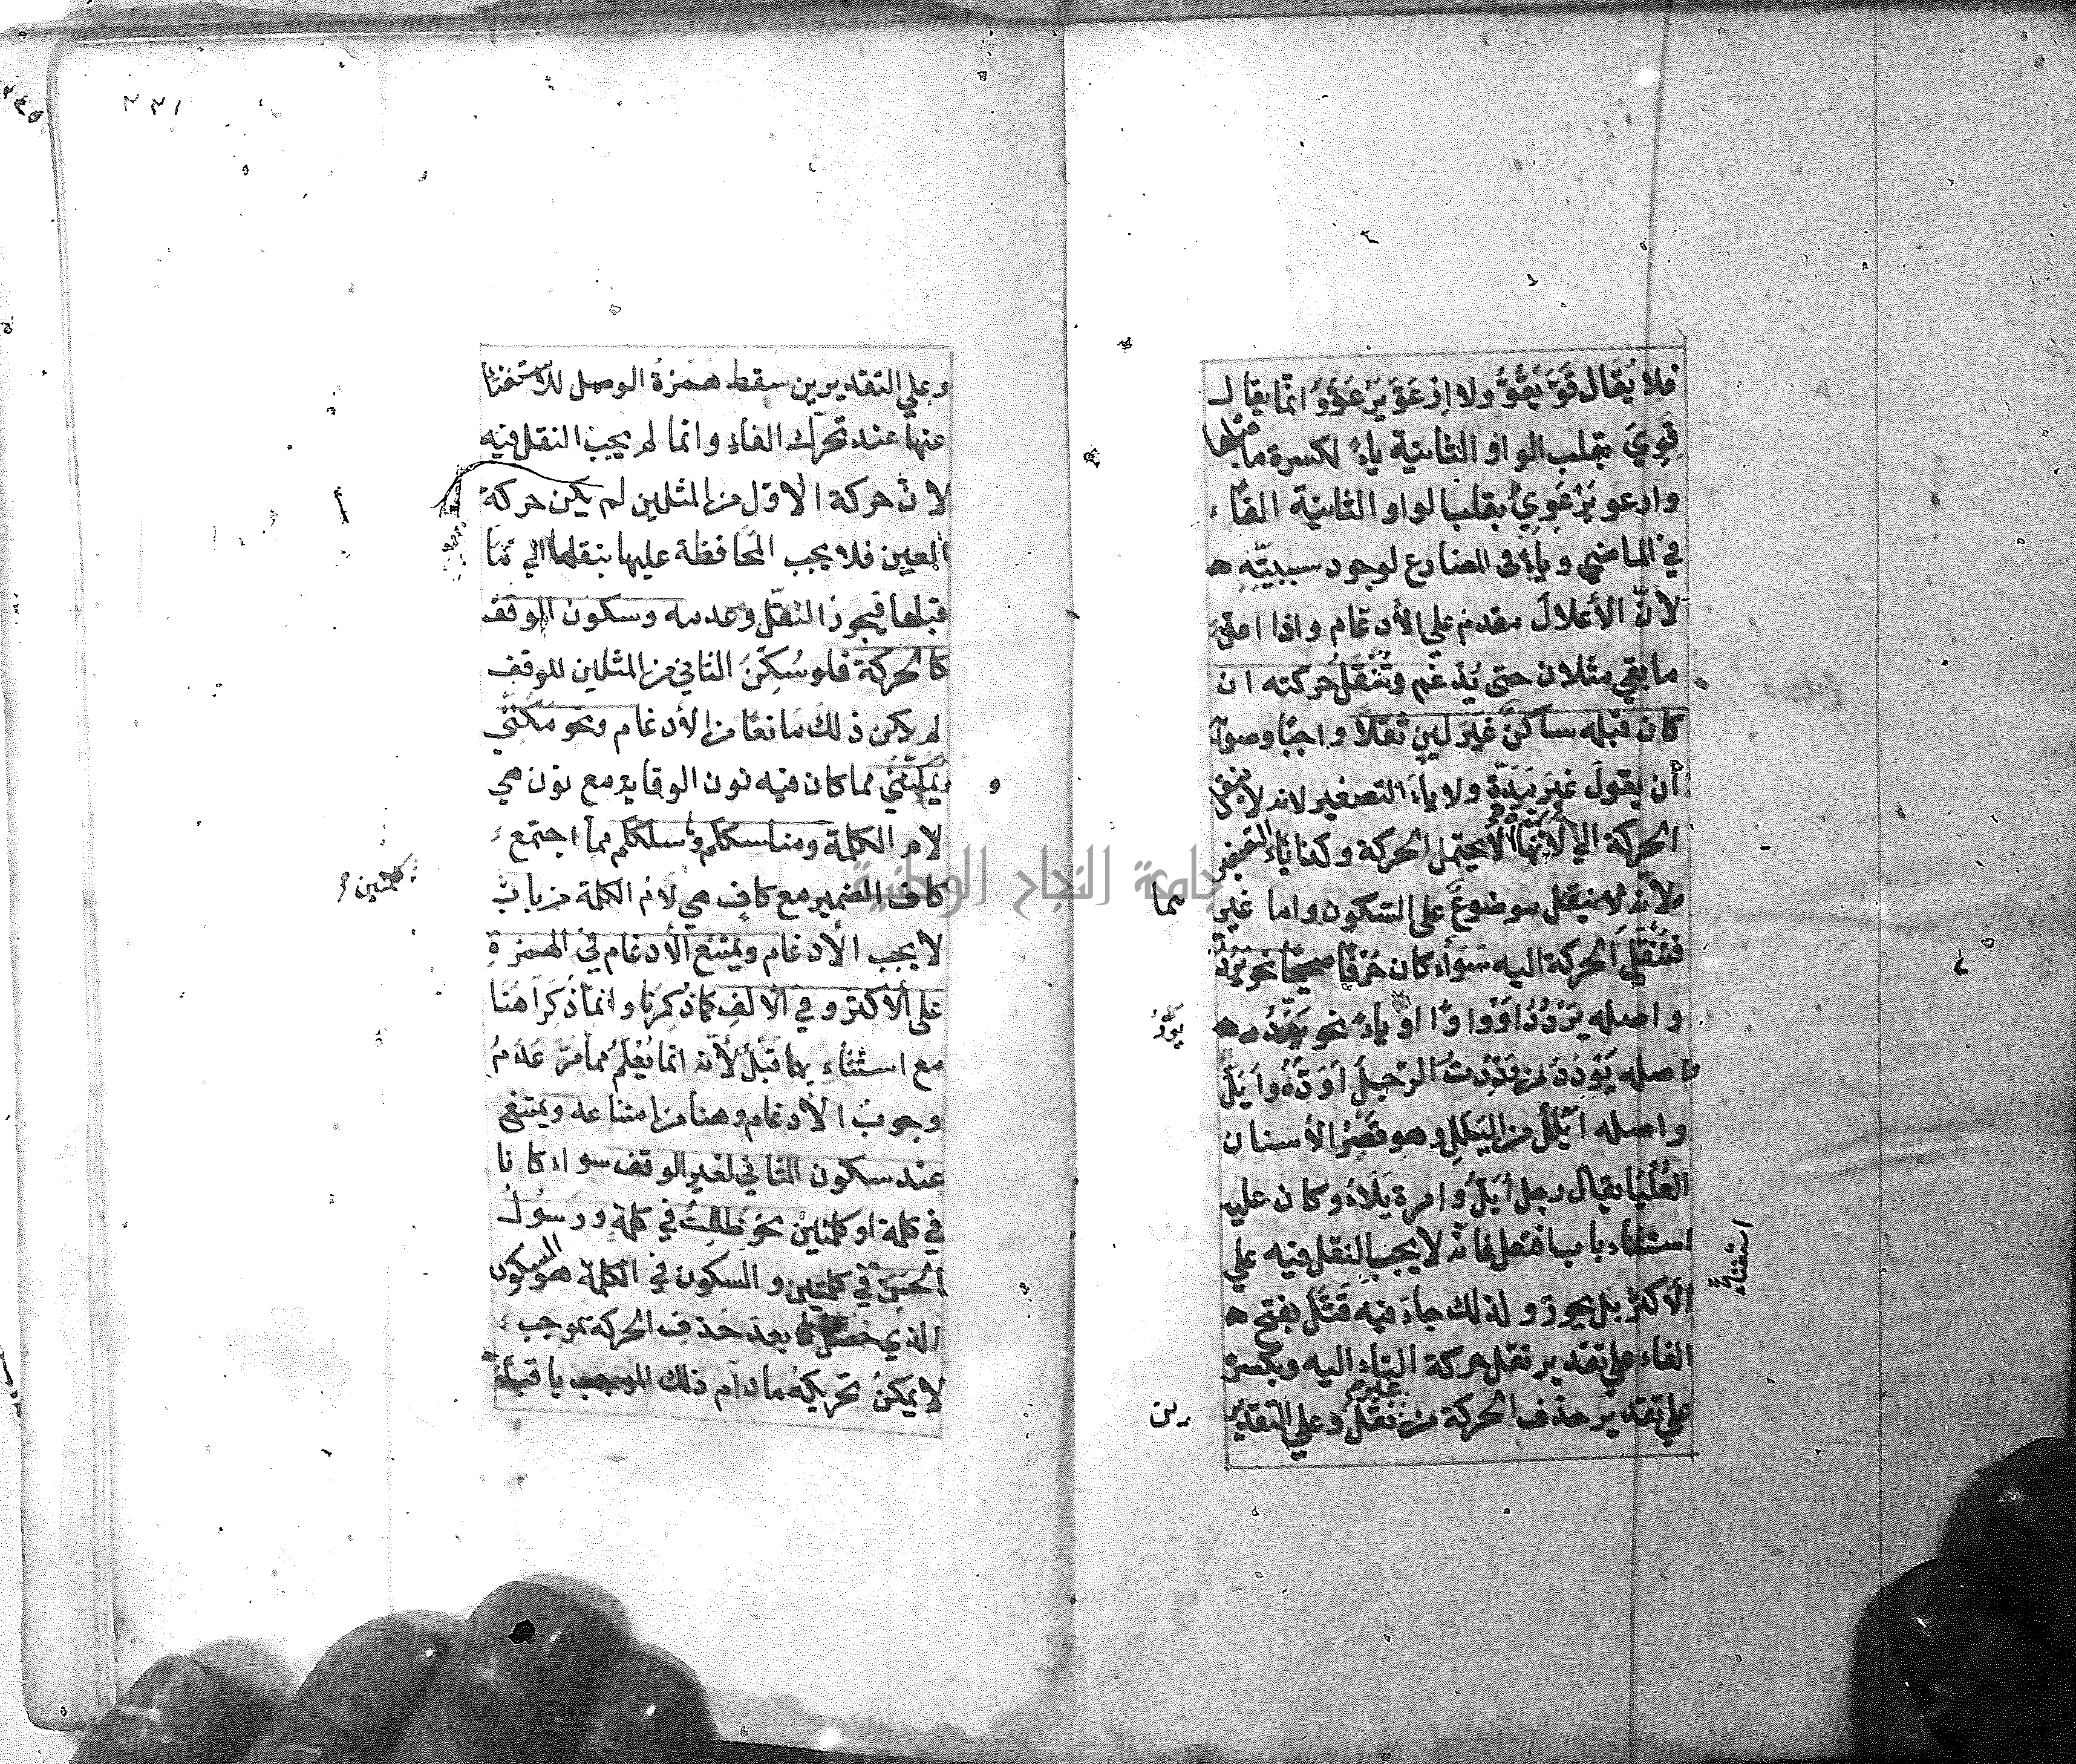 فلا يُقَال قَوَّ يَقُوُّ ولا ارْعَوَّ يَرْعَوُّ وانّما يقال
قَوِيَ بقلب الواو الثانية ياءً لكسرة ما قبلها
وارعوى يَرْعَوِي بقلب الواو الثانية الفاء
في الماضي وياءً فى المضارع لوجود سببيّه
لأنّ الأعلال مقدم على الأدغام واذا اعلّ
ما بقي مثلان حتى يُدْغَم وتُنْقَل حركته ان
كان قبله ساكن غيرَ لين نقلاً واجبًا وصوابه
أن يقول غير مَدّة ولا ياءَ التصغير لانه لا ينقل
الحركة الى لأنها لا يحتمل الحركة وكذا ياء التصغير
لأنه موضوع على السكون واما غير
فتُنْقَل الحركة اليه سَوَاء كان حَرْفًا صحيحًا نحو يَرُدّ
واصله يَرْدُدُ اوْ واوًا اوْ ياءً نحو يَوَدُّ
يَوَدُّ
اصله يَوْدَدُ من وَدِدْتُ الرّجلَ اَوَدّهُ وايَلّ
واصله ايْلَلُ من اليَلَلِ وهو قِصَرُ الأسنان
العُلْيَا يقال رجل أيَلّ وامرة يَلّاءُ وكان عليه
استثناء باب افتعل فانّه لا يجب النقل فيه على
استثناءً
الأكثر بل يجوز ولذلك جاءَ فيه قَتَّلَ بفتح
الفاء على تقدير نقل حركة التاء اليه وبكسره
على تقدير حذف الحركة من غير نَقْلٍ وعلى التقدير
رين
٢٣١
وعلى التقديرين سقط همزة الوصل للاستغناء
عنها عند تحرّك الفاءِ وانّما لم يجب النقل فيه
لانّ حركة الاوّل من المثلين لم يكن حركة
العين فلا يجب المحافظة عليها بنقلها الى مَا
قبلها فيجوز النقل وعدمه وسكون الوقف
كالحركة فلو سُكّنَ الثاني من المثلين للوقف
لم يكن ذلك مَانعًا من الأدغام ونحو مَكّنَنِي
ويُمكّنُنِي مما كان فيه نون الوقاية مع نون هي
لام الكلمة ومناسككم وسلككم مما اجتمع
كاف الضمير مع كافٍ هي لامُ الكلمة من باب
كلمتين
لا يجب الأدغام ويمتنع الأدغام في الهمزة
على الأكثر وفي الالفِ كما ذُكِرَنا وانّما ذُكِرَ اهنا
مع استثناءِ بهما قَبْلُ لأنّه انّما يُعْلَمُ ممّا مَرّ عَدَمُ
وجوب الأدغام وهنا من امتناعه ويمتنع
عند سكون الثاني لغير الوقف سواء كانا
في كلمة او كلمتين نحو ظَلِلْتُ في كلمة ورَسُولُ
الحَسَنِ في كلمتين والسكون في الكلمة هو السكون
الذي بعد حَذفِ الحركة بموجب
لا يمكنُ تحريكهُ ما دام ذلك الموجب باقيًا